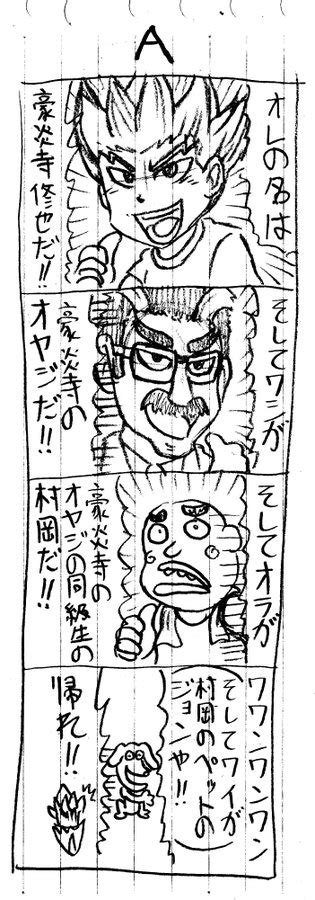 A
オレの名は
豪炎寺
修也だ!!
そしてワシが
豪炎寺の
オヤジだ!!
そしてオラが
豪炎寺の
オヤジの同級生の
村岡だ!!
ワワンワンワン
(そしてワイが
村岡のペットの
ジョンや!!)
帰れ!!